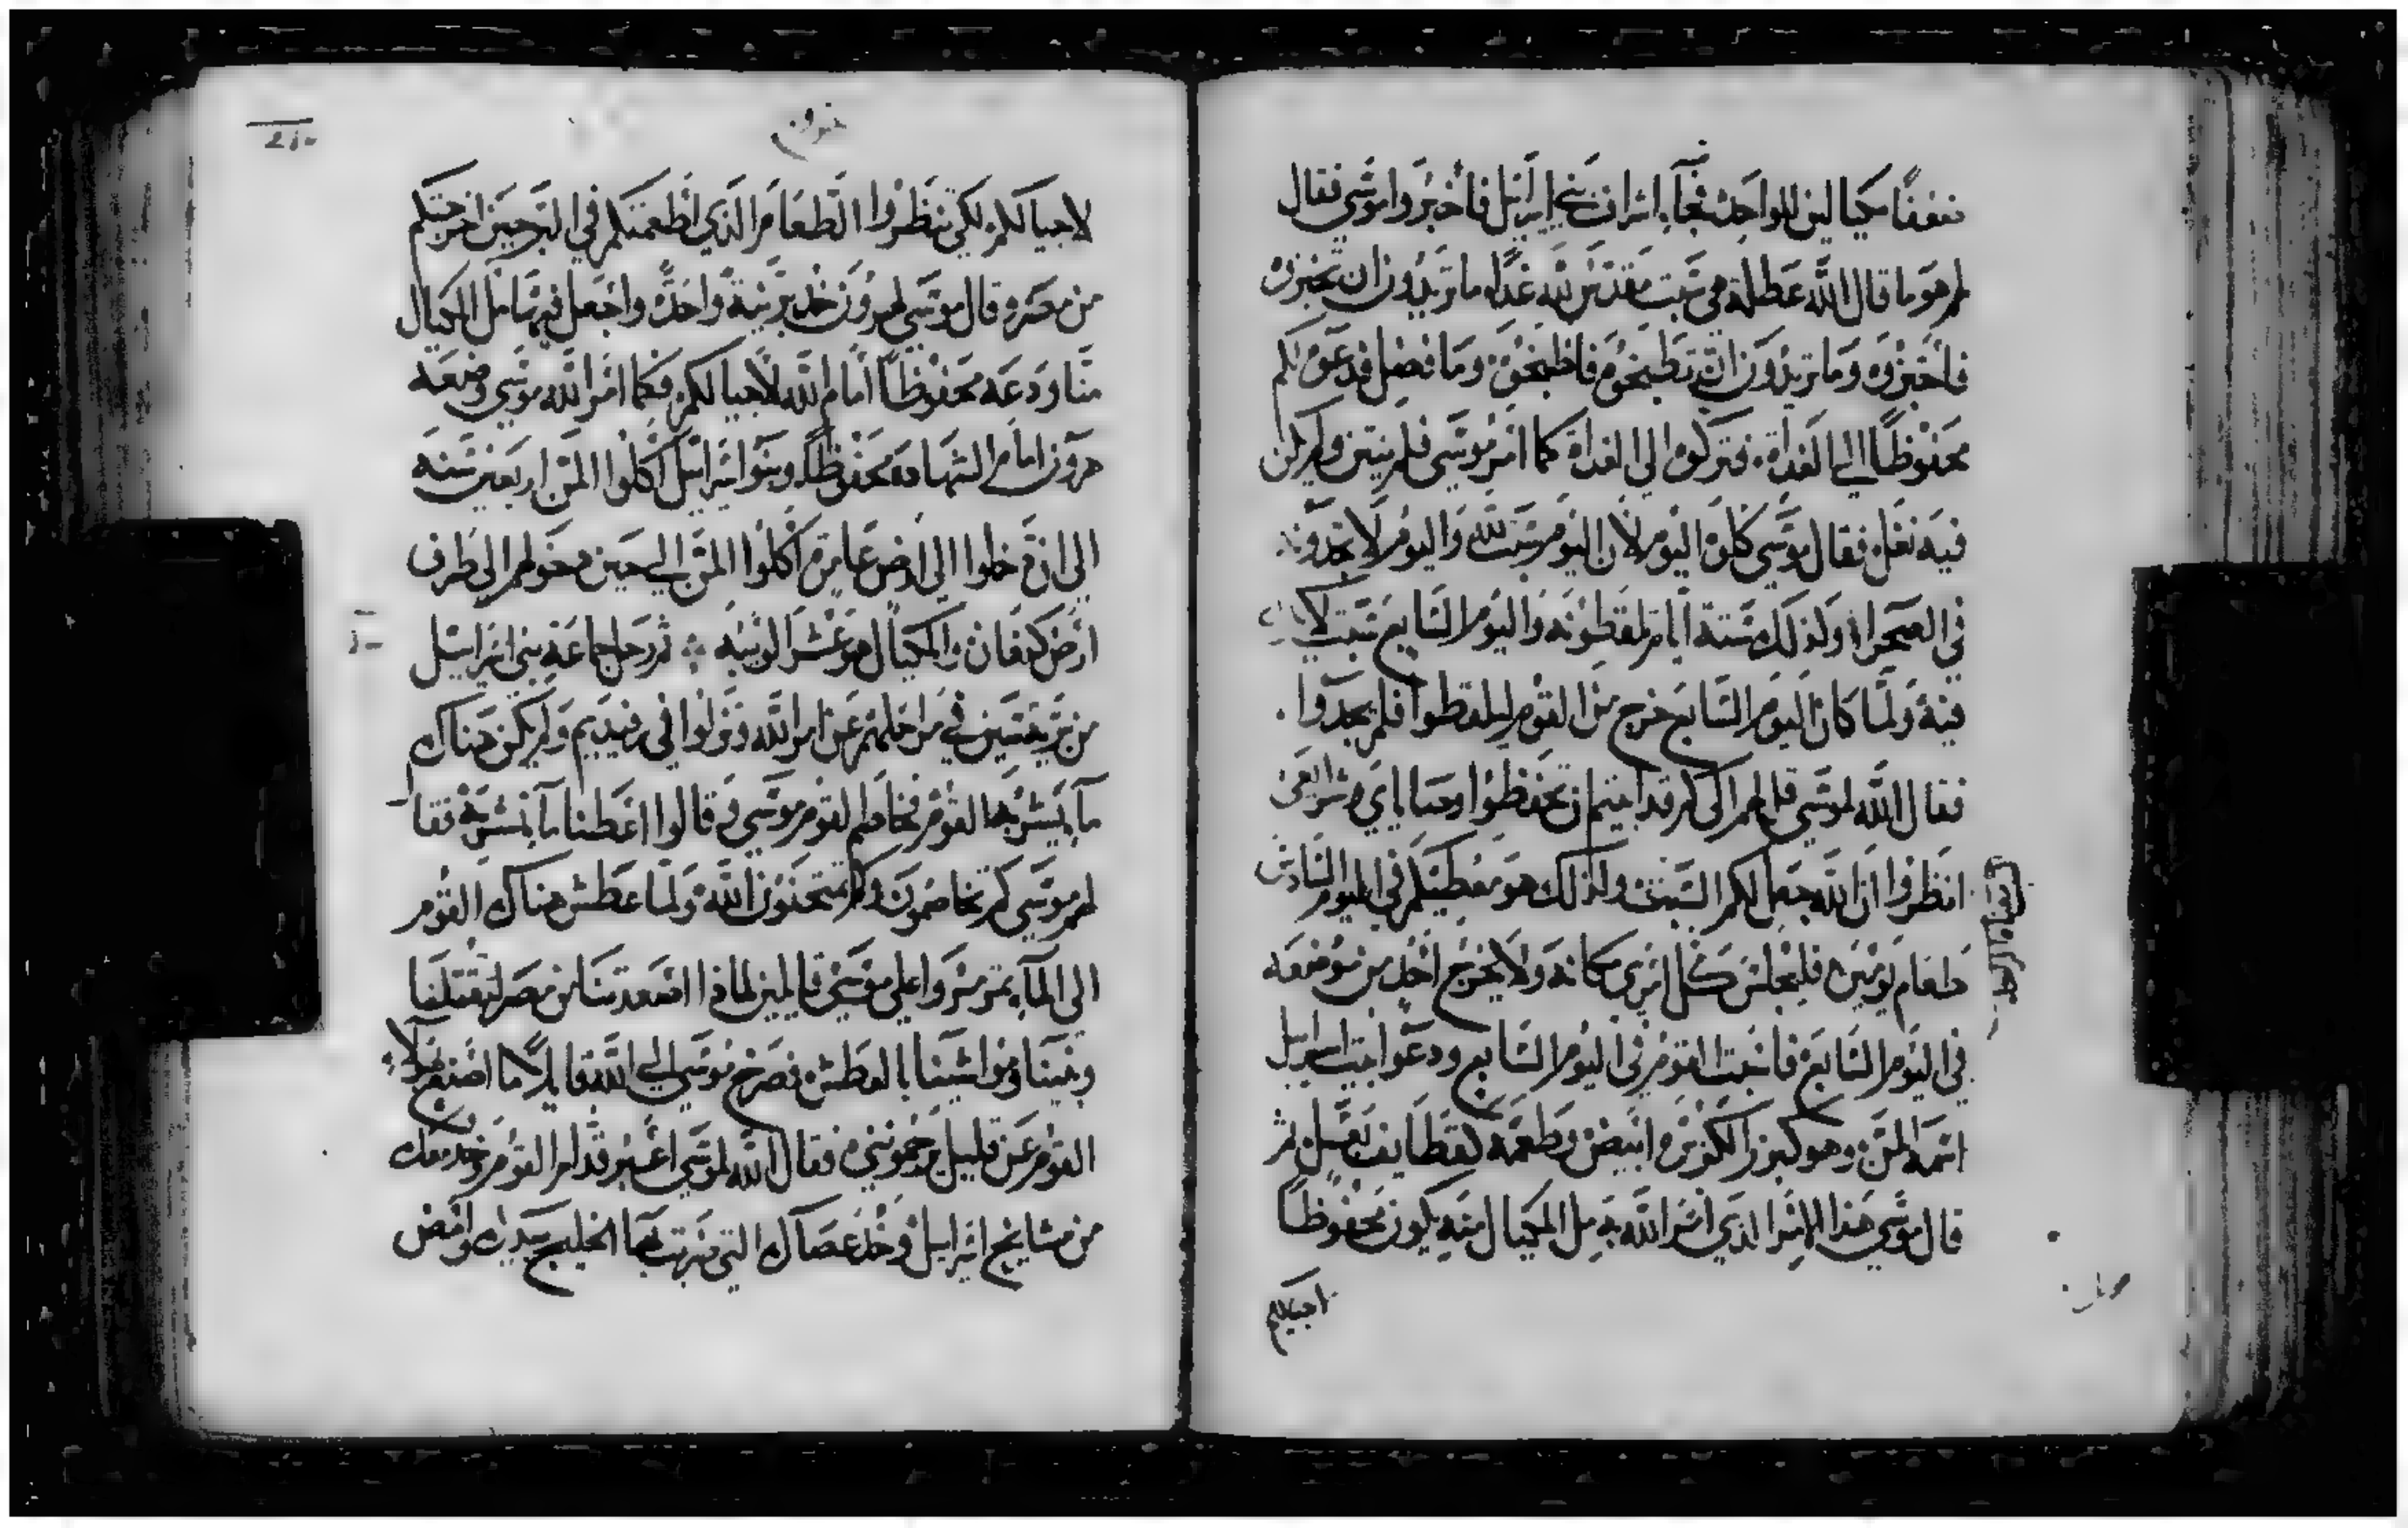 مضعفًا مكيالين للواحد فجاء اشراف بني اسرائيل فأخبروا موسي فقال
لهم هو ما قال الله عطلة هي سبت مقدس لله غدًا ما تريدون ان تخبزوه
فاخبزوه وما تريدون ان تطبخوه فاطبخوه وما فضل فدعوه لكم
محفوظًا الي الغداة فتركوه الي الغداة كما امر موسي فلم ينتن ولم يكن
فيه نغل فقال موسي كلوه اليوم لان اليوم سبت لله واليوم لا تجدونه
في الصحراء ولذلك ستة ايام تلقطونه واليوم السابع سبت لا
فيه ولما كان اليوم السابع خرج من القوم ليلقطوا فلم يجدوا
فقال الله لموسي قل لهم الي كم قد ابيتم ان تحفظوا وصاياي وشرايعي
انظروا ان الله جعل لكم السبت ولذلك هو معطيكم في اليوم السادس
طعام يومين فليجلس كل امري مكانه ولا يخرج احد من موضعه
في اليوم السابع فاسبت القوم في اليوم السابع ودعوا بيت اسرايل
اسمه المن وهو كبزر الكزبره ابيض وطعمه كقطايف بعسل ثم
قال موسي هذا الامر الذي امر الله به مل المكيال منه يكون محفوظًا
لاجيالكم
لاجيالكم لكي ينظروا الطعام الذي اطعمتكم في البر حين اخرجتكم
من مصر وقال موسي لهرون خذ برنية واحدة واجعل فيها مل المكيال
منًا ودعه محفوظًا أمام الله لأجيالكم فكما امر الله موسي وضعه
هرون امام الشهاده محفوظًا وبنوا اسرائيل اكلوا المن اربعين سنه
الي ان دخلوا الي ارض عامرة اكلوا المن الي حين دخولهم الي طرف
ارض كنعان والمكيال هو عشر الويبه ثم رحل جماعة بني اسرائيل
من برية سين في مراحلهم عن امر الله ونزلوا في رفيديم ولم يكن هناك
مآ يشربها القوم فخاصم القوم موسي وقالوا اعطنا مآ نشربه فقال
لهم موسي كم تخاصمون وكم تمتحنون الله ولما عطش هناك القوم
الي المآء تمرمروا علي موسي قايلين لماذا اصعدتنا من مصر لتقتلنا
وبنينا ومواشينا بالعطش فصرخ موسي الي الله قايلاً ما اصنع بهولاء
القوم عن قليل يرجموني فقال الله لموسي اعبر قدام القوم وخذ معك
من مشايخ اسرايل وخذ عصاك التي ضربت بها الخليج بيدك وامض